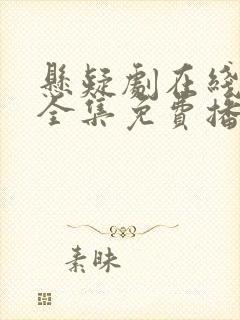 懸疑劇在綫
全集免費播
素昧